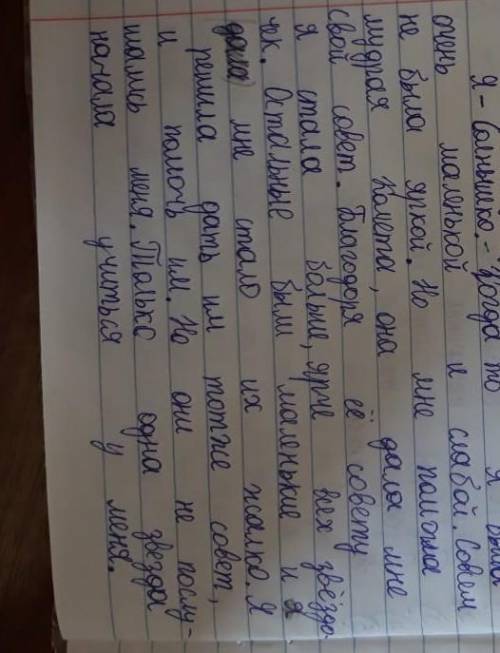 Я - Солнышко. - Когда то я была
очень маленькой и слабой. Совсем
не была яркой. Но мне помогла
мудрая Комета, она дала мне
свой совет. Благодоря её совету
я стала больше, ярче всех звёздо-
чьк. Остальные были маленькие и я
дала мне стало их жалко. Я
решила дать им тотже совет,
и помочь им. Но они не послу-
шались меня. Только одна звезда
начала учиться у меня.